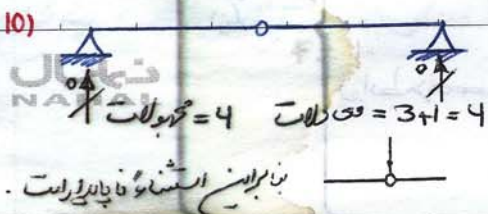 10)
o
o
نهال
NAHAL
مجهولات = 4
معادلات = 3+1 = 4
بنابراین استثناءً ناپایدار است .